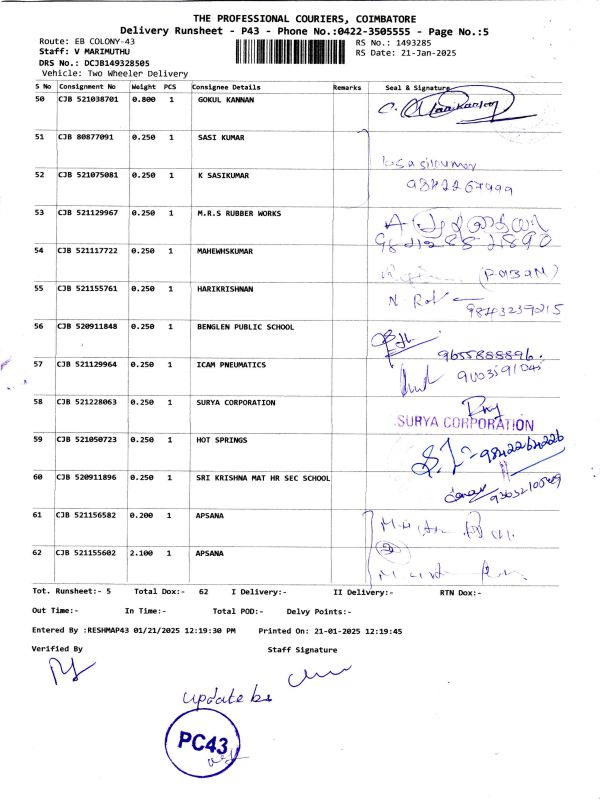 THE PROFESSIONAL COURIERS, COIMBATORE
Delivery Runsheet - P43 - Phone No.:0422-3505555 - Page No.:5
Route: EB COLONY-43
RS No.: 1493285
Staff: V MARIMUTHU
RS Date: 21-Jan-2025
DRS No.: DCJB149328505
Vehicle: Two Wheeler Delivery
S No Consignment No Weight PCS Consignee Details Remarks Seal & Signature
50 CJB 521038701 0.800 1 GOKUL KANNAN
51 CJB 80877091 0.250 1 SASI KUMAR
52 CJB 521075081 0.250 1 K SASIKUMAR
53 CJB 521129967 0.250 1 M.R.S RUBBER WORKS
54 CJB 521117722 0.250 1 MAHEWHSKUMAR
55 CJB 521155761 0.250 1 HARIKRISHNAN
56 CJB 520911848 0.250 1 BENGLEN PUBLIC SCHOOL
9655888896.
57 CJB 521129964 0.250 1 ICAM PNEUMATICS
58 CJB 521228063 0.250 1 SURYA CORPORATION
SURYA CORPORATION
59 CJB 521050723 0.250 1 HOT SPRINGS
60 CJB 520911896 0.250 1 SRI KRISHNA MAT HR SEC SCHOOL
61 CJB 521156582 0.200 1 APSANA
62 CJB 521155602 2.100 1 APSANA
Tot. Runsheet:- 5 Total Dox:- 62 I Delivery:- II Delivery:- RTN Dox:-
Out Time:- In Time:- Total POD:- Delvy Points:-
Entered By :RESHMAP43 01/21/2025 12:19:30 PM Printed On: 21-01-2025 12:19:45
Verified By Staff Signature
update by
PC43